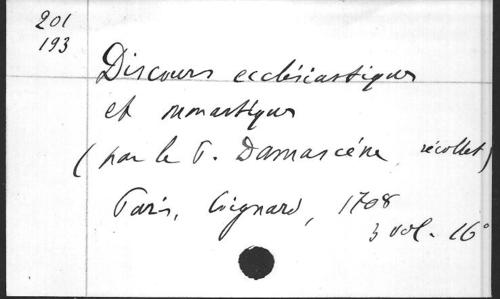 201
193
Discours ecclésiastiques
et monastiques
(par le P. Damascène, récollet)
Paris, Coignard, 1708
3 vol. 16°